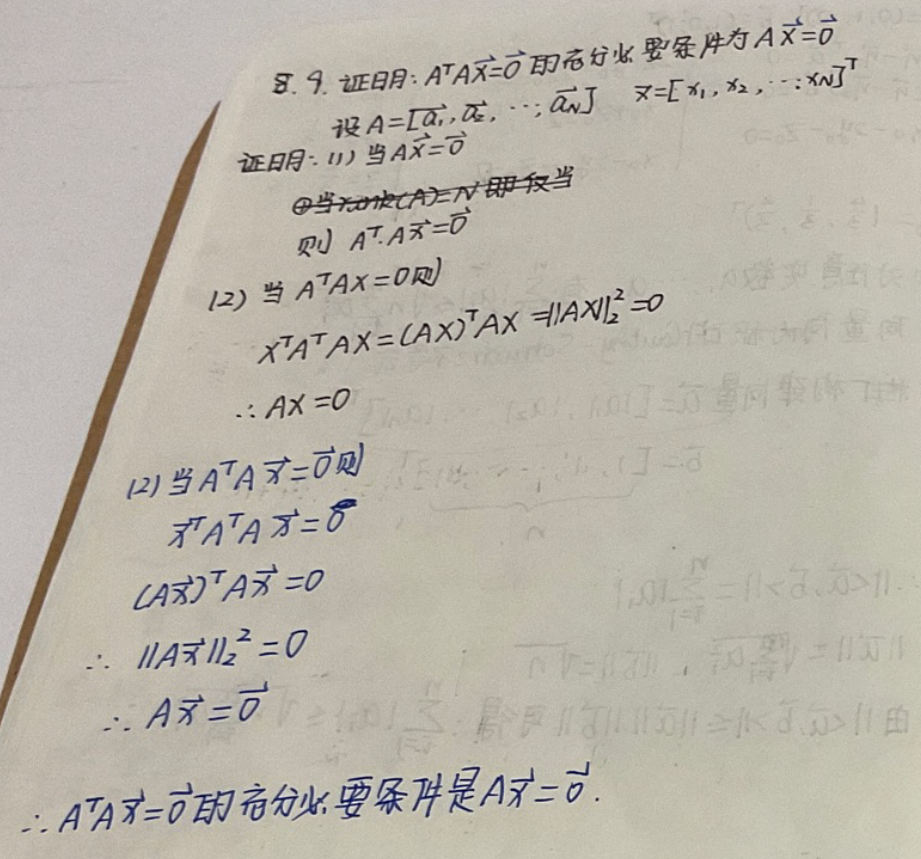 8.9. 证明: AᵀAx⃗=0⃗ 的充分必要条件为 Ax⃗=0⃗
设 A=[a₁⃗, a₂⃗, ⋯, a_N⃗] x⃗=[x₁, x₂, ⋯, x_N]ᵀ
证明: (1) 当Ax⃗=0⃗
①当rank(A)=N 即仅当
则 Aᵀ·Ax⃗=0⃗
(2) 当 AᵀAx=0则
xᵀAᵀAx=(Ax)ᵀAx=‖Ax‖₂²=0
∴ Ax=0
(2) 当AᵀAx⃗=0⃗则
x⃗ᵀAᵀAx⃗=0
(Ax⃗)ᵀAx⃗=0
∴ ‖Ax⃗‖₂²=0
∴ Ax⃗=0⃗
∴ AᵀAx⃗=0⃗的充分必要条件是Ax⃗=0⃗.